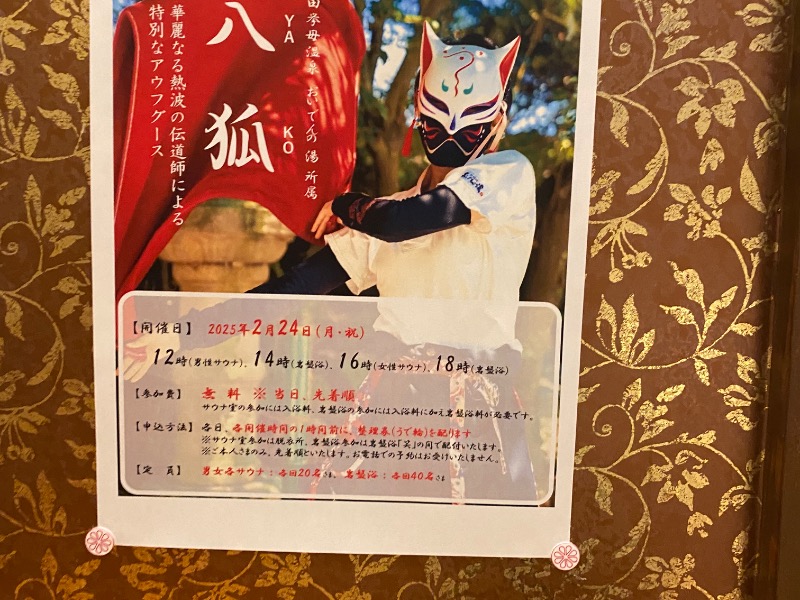 八狐
YA
KO
華麗なる熱波の伝道師による
特別なアウフグース
田参母温泉 おいでんの湯 所属
【開催日】 2025年2月24日(月・祝)
12時(男性サウナ)、14時(岩盤浴)、16時(女性サウナ)、18時(岩盤浴)
【参加費】 無料 ※当日、先着順
サウナ室の参加には入浴料、岩盤浴の参加には入浴料に加え岩盤浴料が必要です。
【申込方法】 各日、各開催時間の1時間前に、整理券(うで輪)を配ります
※サウナ室参加は脱衣所、岩盤浴参加は岩盤浴「笑」の間で配付いたします。
※ご本人さまのみ、先着順といたします。お電話での予約はお受けいたしません。
【定員】 男女各サウナ:各回20名さま、岩盤浴:各回40名さま